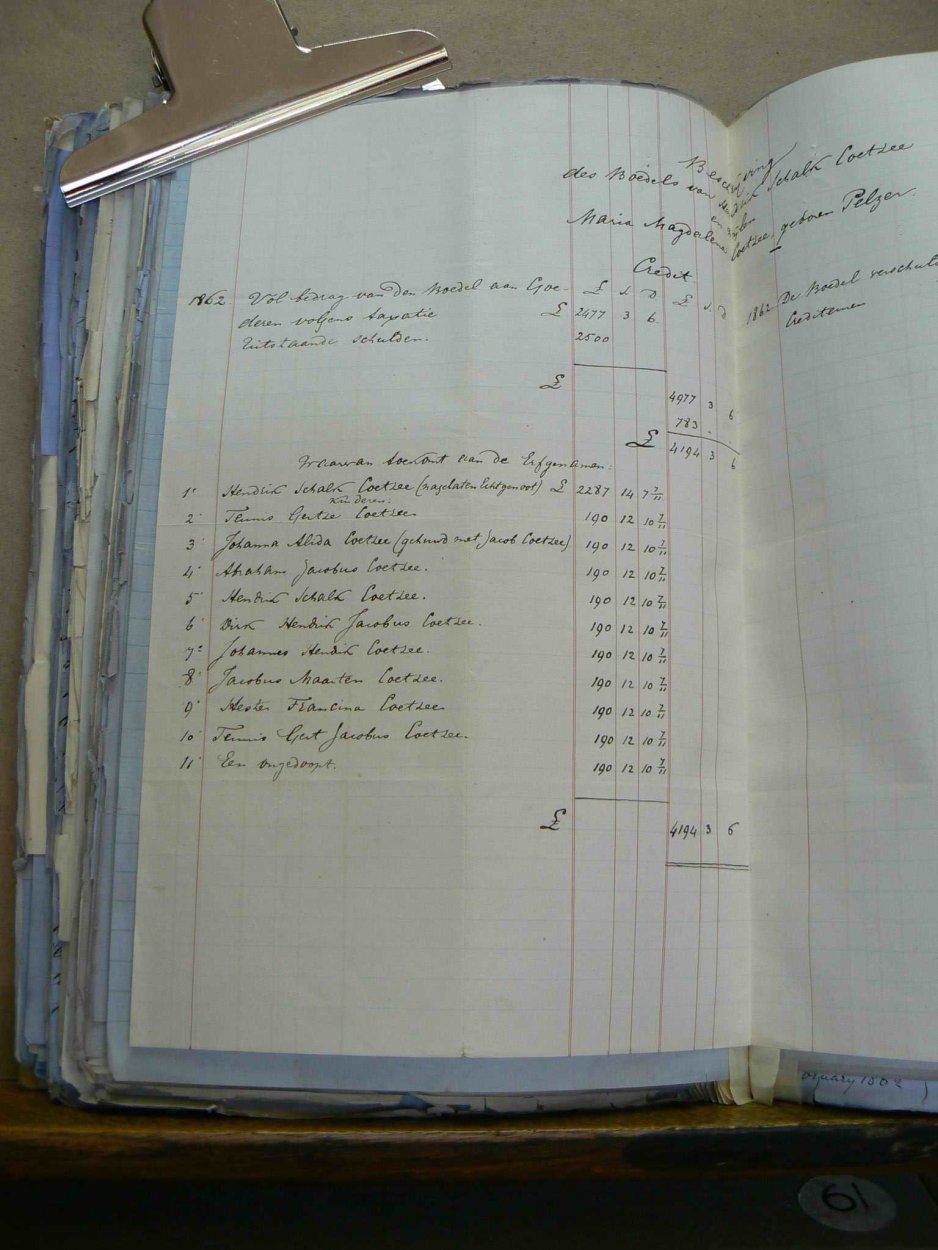 Beschrijving
des Boedels van Hendrik Schalk Coetzee
en wylen
Maria Magdalena Coetzee, geboren Pelzer.
Credit
£ s D £ s D
1862 Vol bedrag van den Boedel aan Goe-
deren volgens taxatie £ 2477 3 6
Uitstaande schulden. 2500
£ 4977 3 6
783 . .
£ 4194 3 6
Waarvan toekomt aan de Erfgenamen:
1° Hendrik Schalk Coetzee (nagelaten Echtgenoot) £ 2287 14 7 7/11
Kinderen:
2° Teunis Gertze Coetzee 190 12 10 7/11
3° Johanna Alida Coetzee (gehuwd met Jacob Coetzee) 190 12 10 7/11
4° Abraham Jacobus Coetzee. 190 12 10 7/11
5° Hendrik Schalk Coetzee. 190 12 10 7/11
6° Dirk Hendrik Jacobus Coetzee. 190 12 10 7/11
7° Johannes Hendrik Coetzee. 190 12 10 7/11
8° Jacobus Maarten Coetzee. 190 12 10 7/11
9° Hester Francina Coetzee 190 12 10 7/11
10° Teunis Gert Jacobus Coetzee. 190 12 10 7/11
11° Een ongedoopt. 190 12 10 7/11
£ 4194 3 6
1862 De Boedel verschuld
Crediteuren
61